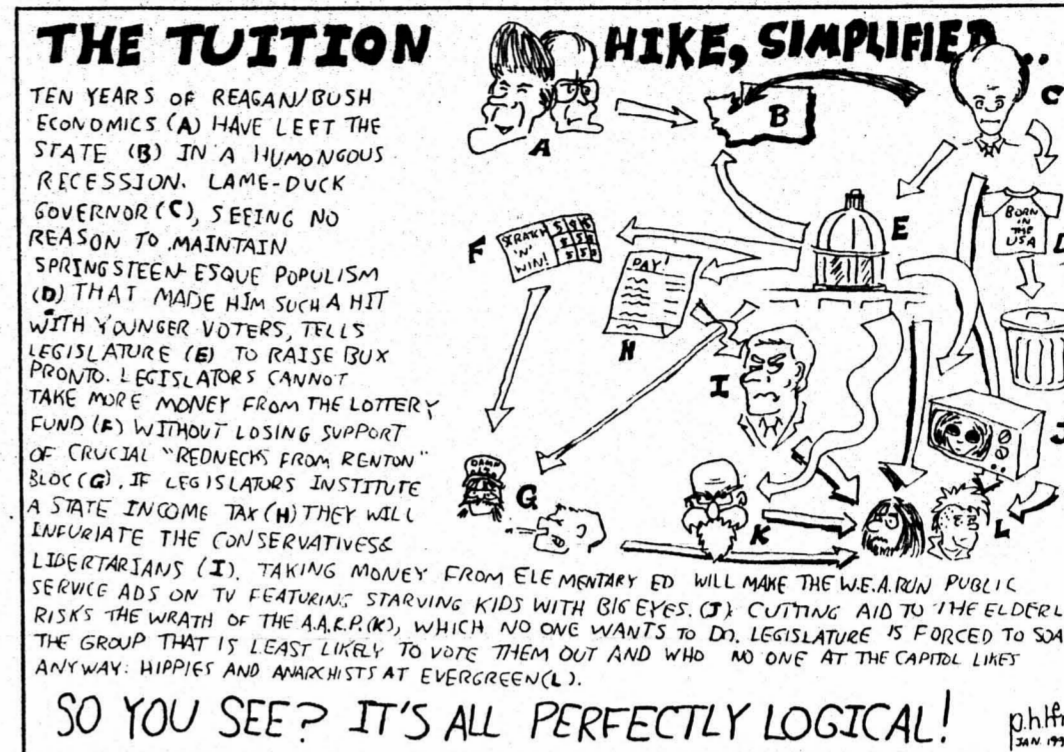 THE TUITION HIKE, SIMPLIFIED...
TEN YEARS OF REAGAN/BUSH
ECONOMICS (A) HAVE LEFT THE
STATE (B) IN A HUMONGOUS
RECESSION. LAME-DUCK
GOVERNOR (C), SEEING NO
REASON TO MAINTAIN
SPRINGSTEEN-ESQUE POPULISM
(D) THAT MADE HIM SUCH A HIT
WITH YOUNGER VOTERS, TELLS
LEGISLATURE (E) TO RAISE BUX
PRONTO. LEGISLATORS CANNOT
TAKE MORE MONEY FROM THE LOTTERY
FUND (F) WITHOUT LOSING SUPPORT
OF CRUCIAL "REDNECKS FROM RENTON"
BLOC (G). IF LEGISLATORS INSTITUTE
A STATE INCOME TAX (H) THEY WILL
INFURIATE THE CONSERVATIVES&
LIBERTARIANS (I). TAKING MONEY FROM ELEMENTARY ED WILL MAKE THE W.E.A. RUN PUBLIC
SERVICE ADS ON TV FEATURING STARVING KIDS WITH BIG EYES. (J) CUTTING AID TO THE ELDERL
RISKS THE WRATH OF THE A.A.R.P. (K), WHICH NO ONE WANTS TO DO. LEGISLATURE IS FORCED TO SOA
THE GROUP THAT IS LEAST LIKELY TO VOTE THEM OUT AND WHO NO ONE AT THE CAPITOL LIKES
ANYWAY: HIPPIES AND ANARCHISTS AT EVERGREEN (L).
A
B
C
BORN
IN
THE
USA
E
F
'N'
WIN!
PAY!
H
I
J
DAMN
G
K
L
SO YOU SEE? IT'S ALL PERFECTLY LOGICAL!
JAN.